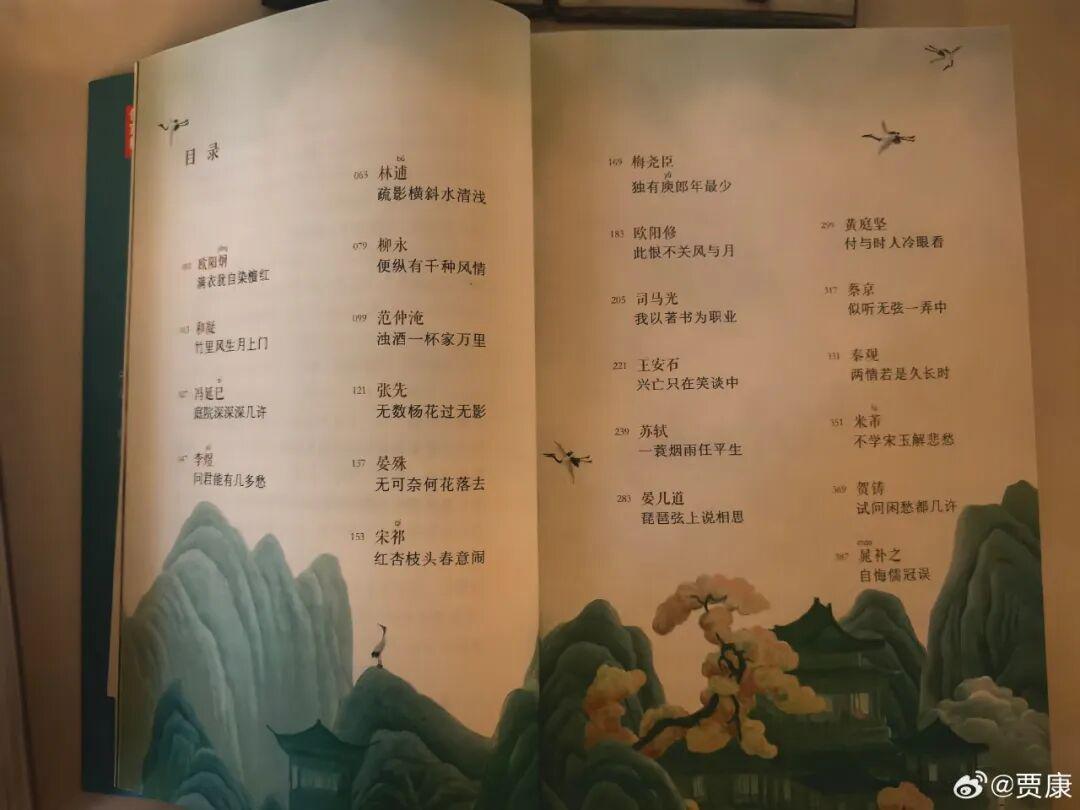 目录
欧阳炯
满衣犹自染檀红
和凝
竹里风生月上门
冯延巳
庭院深深深几许
李煜
问君能有几多愁
bū
063 林逋
疏影横斜水清浅
079 柳永
便纵有千种风情
099 范仲淹
浊酒一杯家万里
121 张先
无数杨花过无影
137 晏殊
无可奈何花落去
qí
153 宋祁
红杏枝头春意闹
169 梅尧臣
yǔ
独有庾郎年最少
183 欧阳修
此恨不关风与月
205 司马光
我以著书为职业
221 王安石
兴亡只在笑谈中
239 苏轼
一蓑烟雨任平生
283 晏几道
琵琶弦上说相思
299 黄庭坚
付与时人冷眼看
317 蔡京
似听无弦一弄中
331 秦观
两情若是久长时
351 米芾
不学宋玉解悲愁
369 贺铸
试问闲愁都几许
cháo
387 晁补之
自悔儒冠误
@贾康